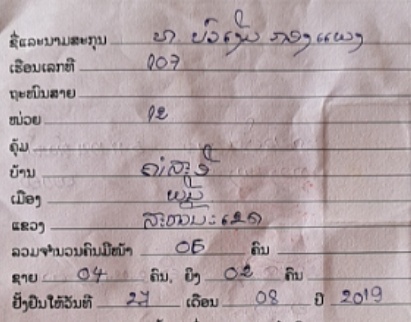 ຊື່ແລະນາມສະກຸນ ທ.
ເຮືອນເລກທີ 107
ຖະໜົນສາຍ
ໜ່ວຍ 12
ຄຸ້ມ
ບ້ານ
ເມືອງ
ແຂວງ ສະຫວັນນະເຂດ
ລວມຈຳນວນຄົນມີໜ້າ 06 ຄົນ
ຊາຍ 04 ຄົນ, ຍິງ 02 ຄົນ
ຢັ້ງຢືນໃຫ້ວັນທີ 27 ເດືອນ 08 ປີ 2019